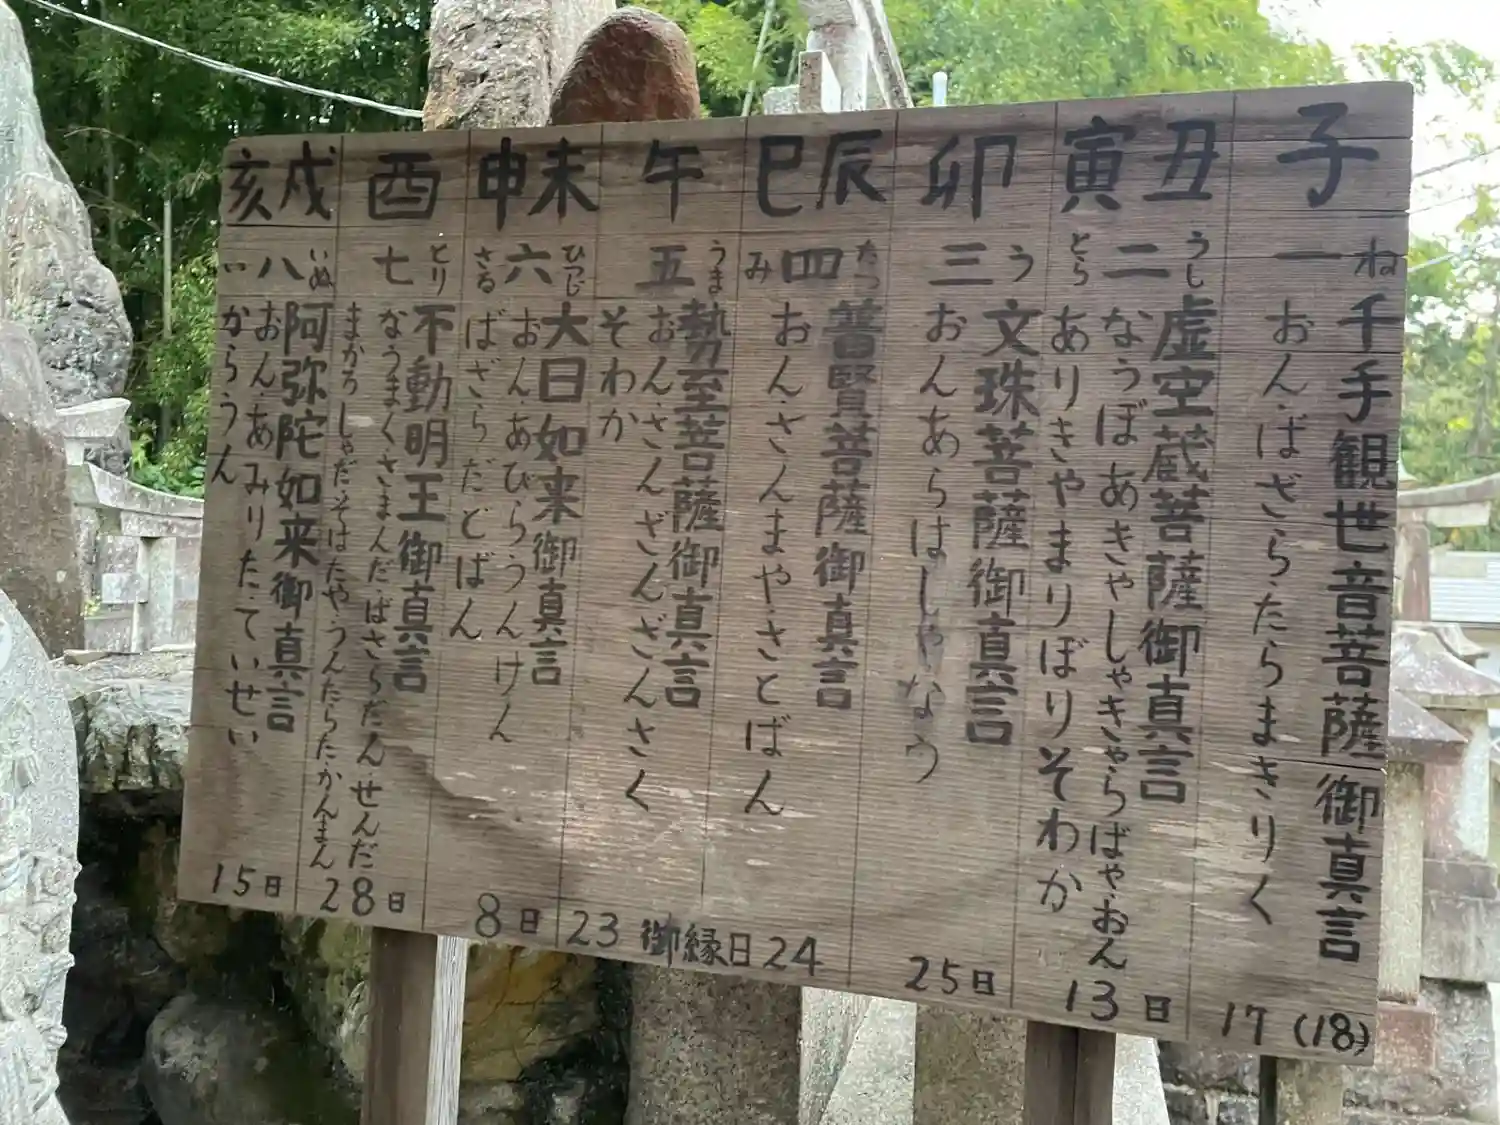 子
ね
一
千手観世音菩薩御真言
おん・ばざらたらまきりく
17(18)
丑
寅
うし
二
とら
虚空蔵菩薩御真言
なうぼあきゃしゃきゃらばや・おん
ありきやまりぼりそわか
13日
卯
う
三
文珠菩薩御真言
おんあらはしゃなう
25日
辰
巳
たつ
四
み
普賢菩薩御真言
おん・さんまや・さとばん
24
午
うま
五
勢至菩薩御真言
おんさんざんざんさく
そわか
御縁日
23
未
申
ひつじ
六
さる
大日如来御真言
おん・あびらうんけん
ばざらだどばん
8日
酉
とり
七
不動明王御真言
なうまくさまんだ・ばさらだん・せんだ
まかろしゃだそはたや・うんたらたかんまん
28日
戌
亥
いぬ
八
い
阿弥陀如来御真言
おん・あみりたていせい
からうん
15日